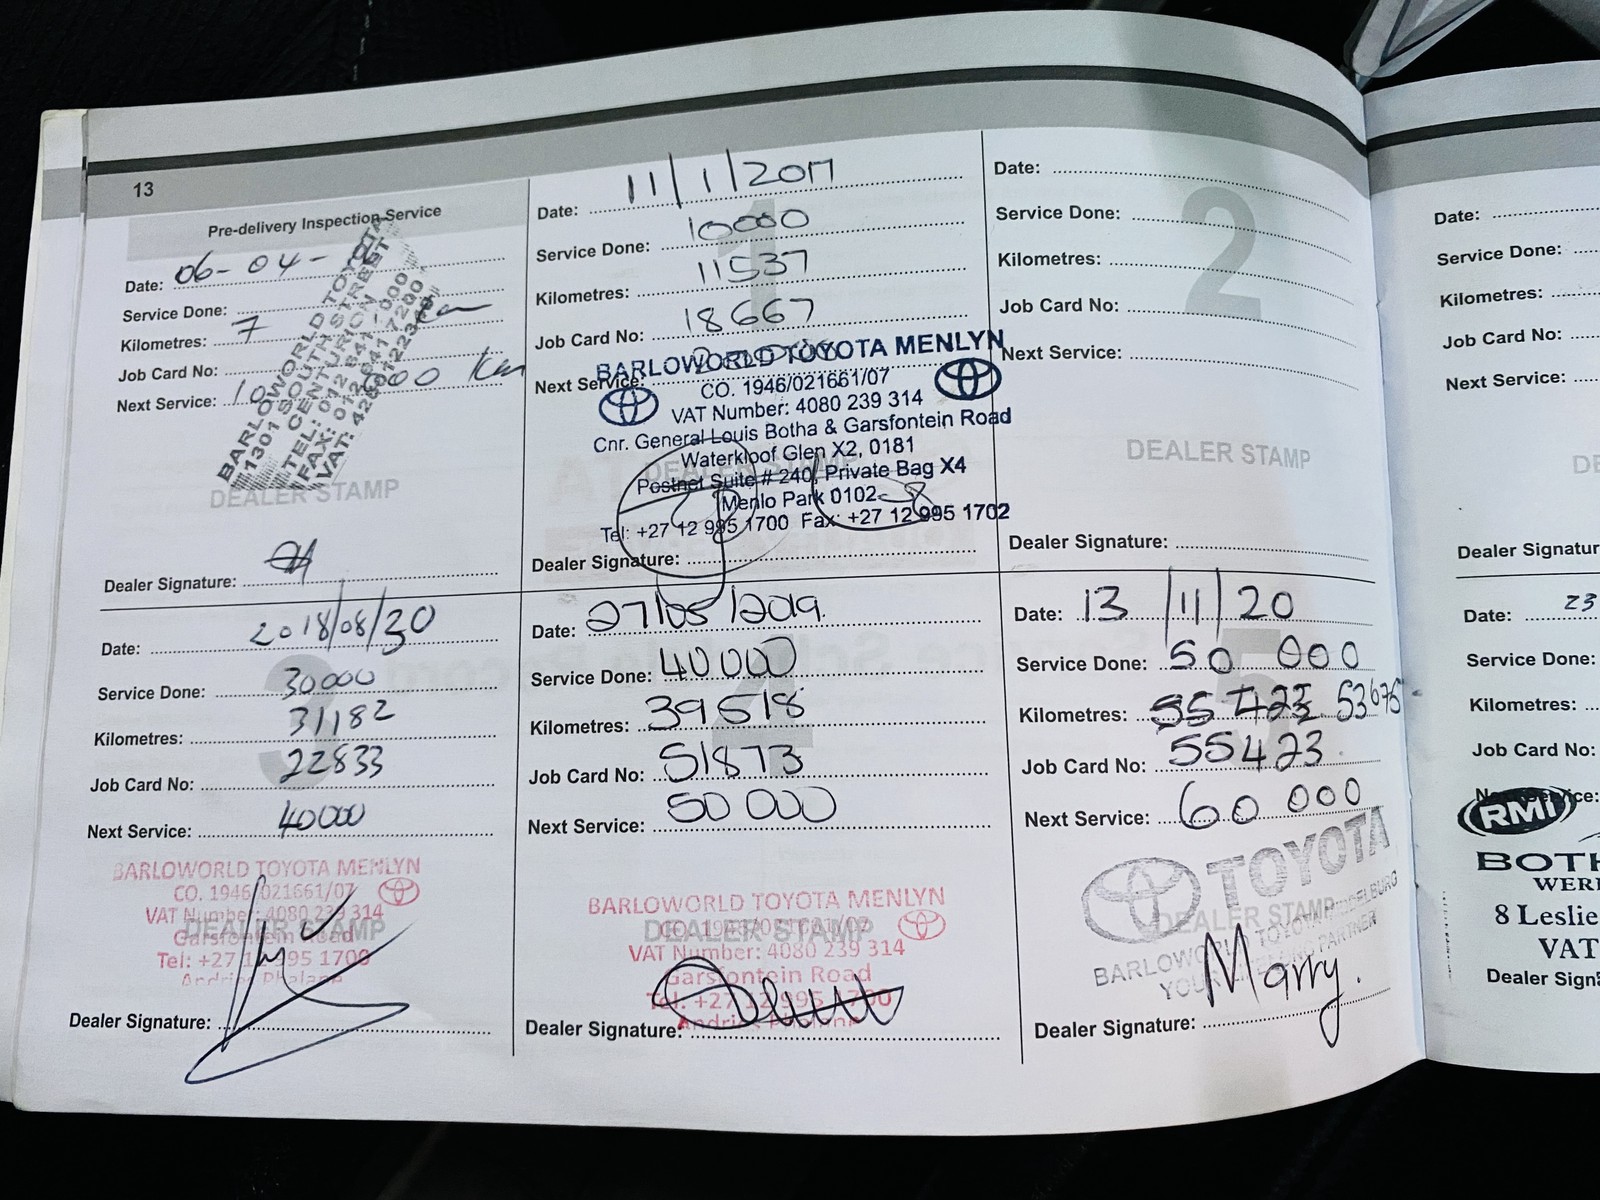 13
Pre-delivery Inspection Service
Date: 06-04-
Service Done:
Kilometres: 7 km
Job Card No:
Next Service: 10 000 km
BARLOWORLD TOYOTA
1301 SOUTH STREET
CENTURION
TEL: 012 641
FAX: 012 641 7200
VAT:
DEALER STAMP
Dealer Signature:
1
Date: 11/1/2017
Service Done: 10000
Kilometres: 11537
Job Card No: 18667
Next Service:
BARLOWORLD TOYOTA MENLYN
CO. 1946/021661/07
VAT Number: 4080 239 314
Cnr. General Louis Botha & Garsfontein Road
Waterkloof Glen X2, 0181
Postnet Suite # 240, Private Bag X4
Menlo Park 0102
Tel: +27 12 995 1700 Fax: +27 12 995 1702
DEALER STAMP
Dealer Signature:
2
Date:
Service Done:
Kilometres:
Job Card No:
Next Service:
DEALER STAMP
Dealer Signature:
3
Date: 2018/08/30
Service Done: 30000
Kilometres: 31182
Job Card No: 22833
Next Service: 40000
BARLOWORLD TOYOTA MENLYN
CO. 1946/021661/07
VAT Number: 4080 239 314
DEALER STAMP
Garsfontein Road
Tel: +27 12 995 1700
Dealer Signature:
4
Date: 27/05/2019.
Service Done: 40000
Kilometres: 39518
Job Card No: 51873
Next Service: 50 000
BARLOWORLD TOYOTA MENLYN
DEALER STAMP
VAT Number: 4080 239 314
Garsfontein Road
Tel: +27 12 995 1700
Dealer Signature:
5
Date: 13/11/20
Service Done: 50 000
Kilometres: 55423 53675
Job Card No: 55423
Next Service: 60 000
TOYOTA
DEALER STAMP
BARLOWORLD TOYOTA
Marry.
Dealer Signature:
Date:
Service Done:
Kilometres:
Job Card No:
Next Service:
Dealer
Date: 23
Service Done:
Kilometres:
Job Card No:
RMI
8 Leslie
VAT
Dealer